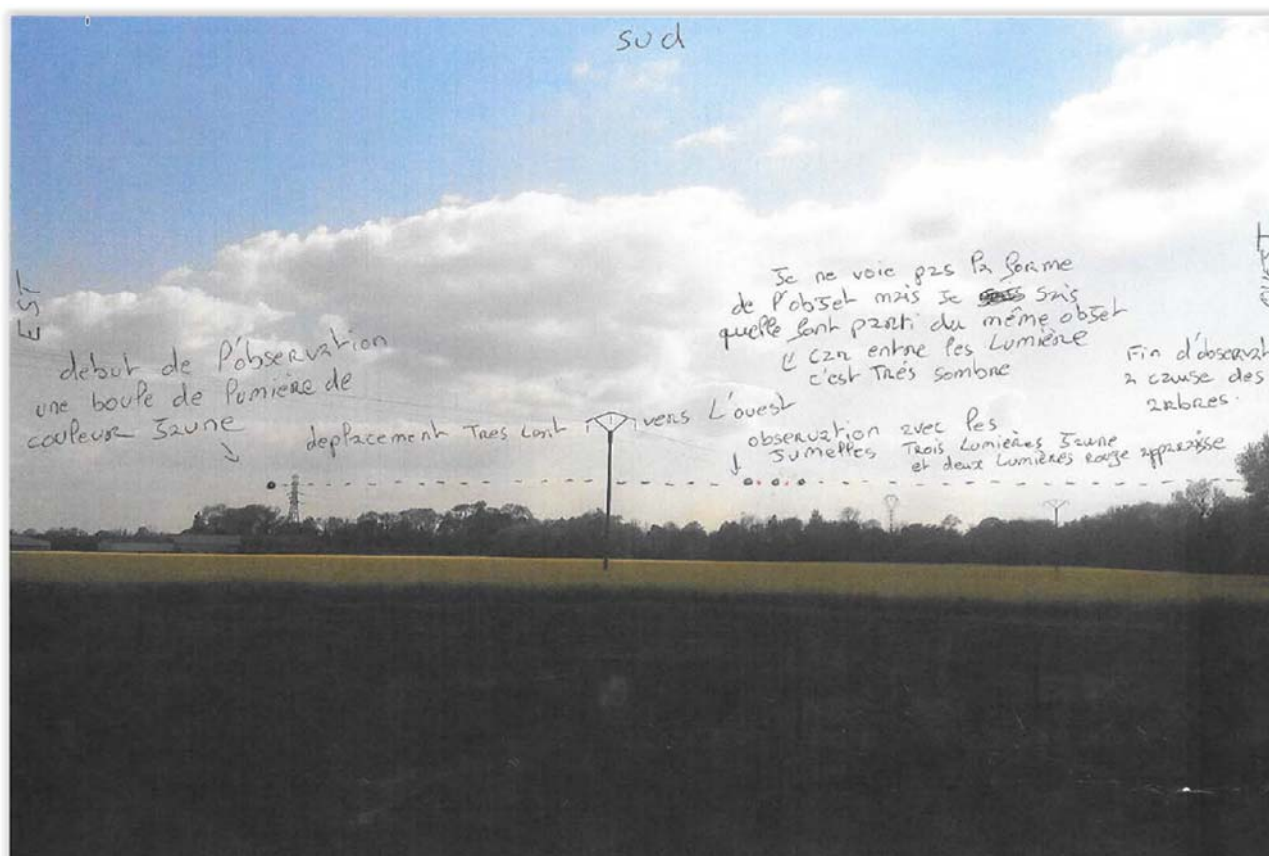 sud
EST
debut de l'observation
une boule de lumière de
couleur Jaune
deplacement Tres Lent vers L'ouest
Je ne voie pas la forme
de l'objet mais Je sais
quelle font parti du même objet
car entre les Lumière
c'est Trés sombre
observation avec les
Jumelles Trois Lumières Jaune
et deux Lumières Rouge apparaisse
Fin d'observat
a cause des
arbres.